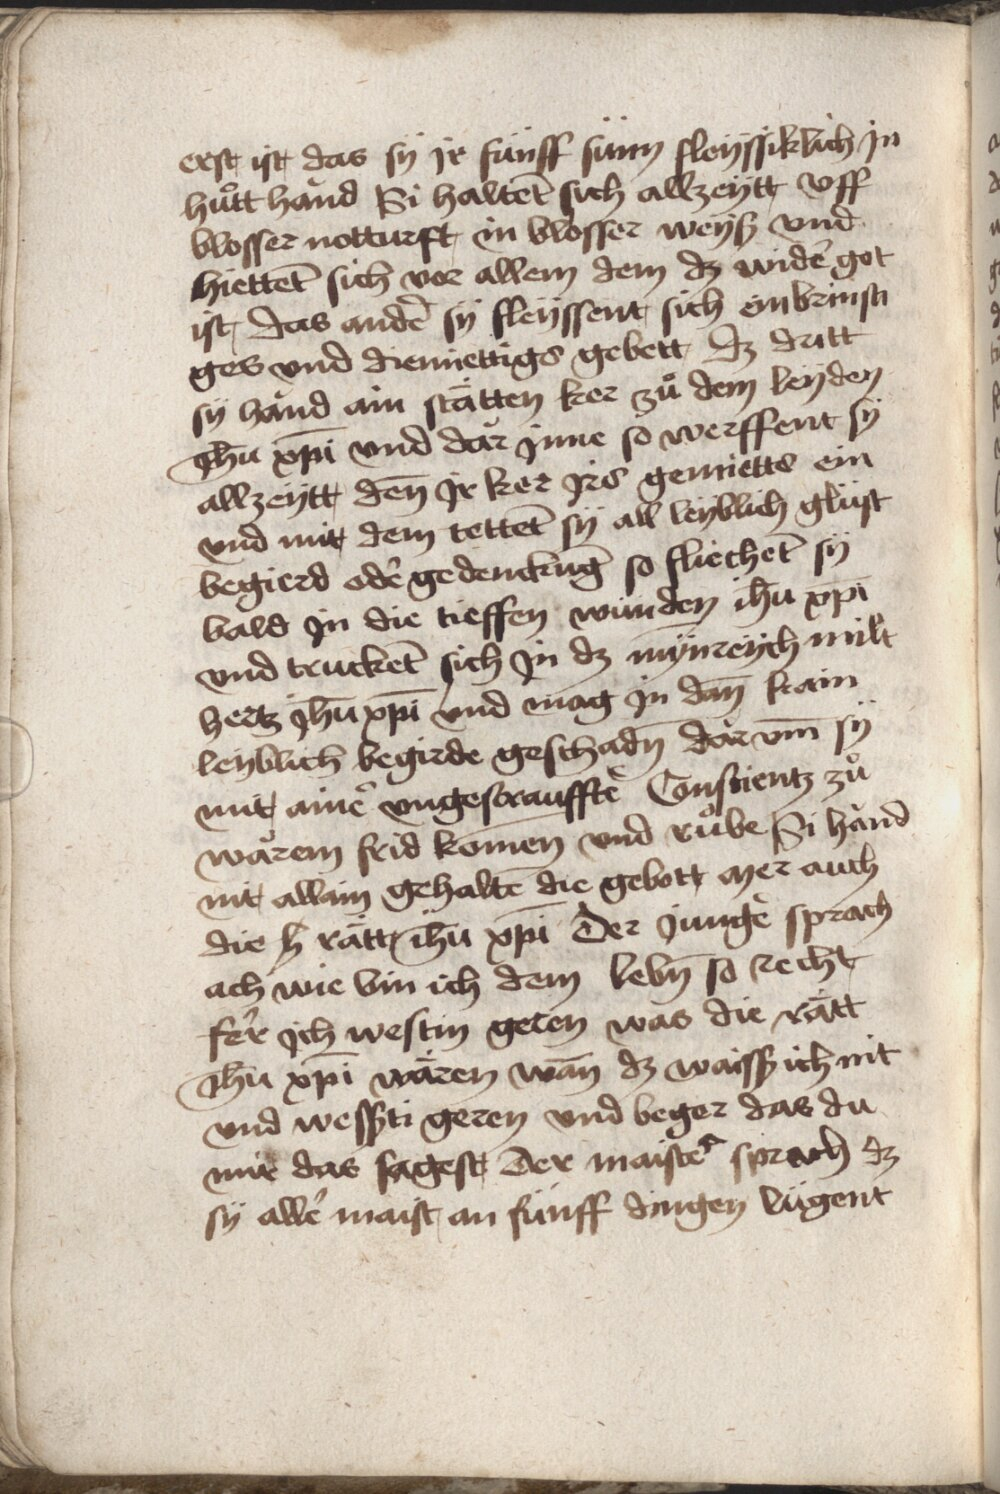 erst ist das sÿ jr fünff sünn fleÿssiklich jn
hůtt hànd Si haltet̄ sich allzeÿtt vff
blosser notturft in blosser weÿß vnd
hiettet̄ sich vor allem dem dz wider̄ got
ist das ander̄ sÿ fleÿssent sich einbrinsti
ges vnd diemiettigs gebett dz dritt
sÿ hànd ain stätten ker zů dem leÿden
jhū xp̄i vnd dàr jnne so werffent sÿ
allzeÿtt den̄ jr ker jrs gemietts ein
vnd mit dem tettet̄ sÿ all leÿblich glüst
begierd oder̄ gedenckūg so fliechet̄ sÿ
bald jn die tieffen wunden ihū xp̄i
vnd trucket̄ sich jn dz mÿnreÿch milt
hertz jhū xp̄i vnd mag jn dan̄ kain
leÿblich begirde geschadn̄ dàr vm̄ sÿ
mit ainer̄ vngestraufftē Conscientz zů
wàrem frid komen̄ vnd růbe Si hànd
nit allain gehaltē die gebott mer auch
die h̄ rätt ihū xp̄i Der jungē sprach
ach wie bin ich dem lebn̄ so recht
fer̄ jch westin geren was die rätt
jhū xp̄i wären wan̄ dz waissß ich nit
vnd wesßti geren vnd beger das du
mir das sagest Der maister sprach dz
sÿ aller̄ maist an fünff dingen lügent